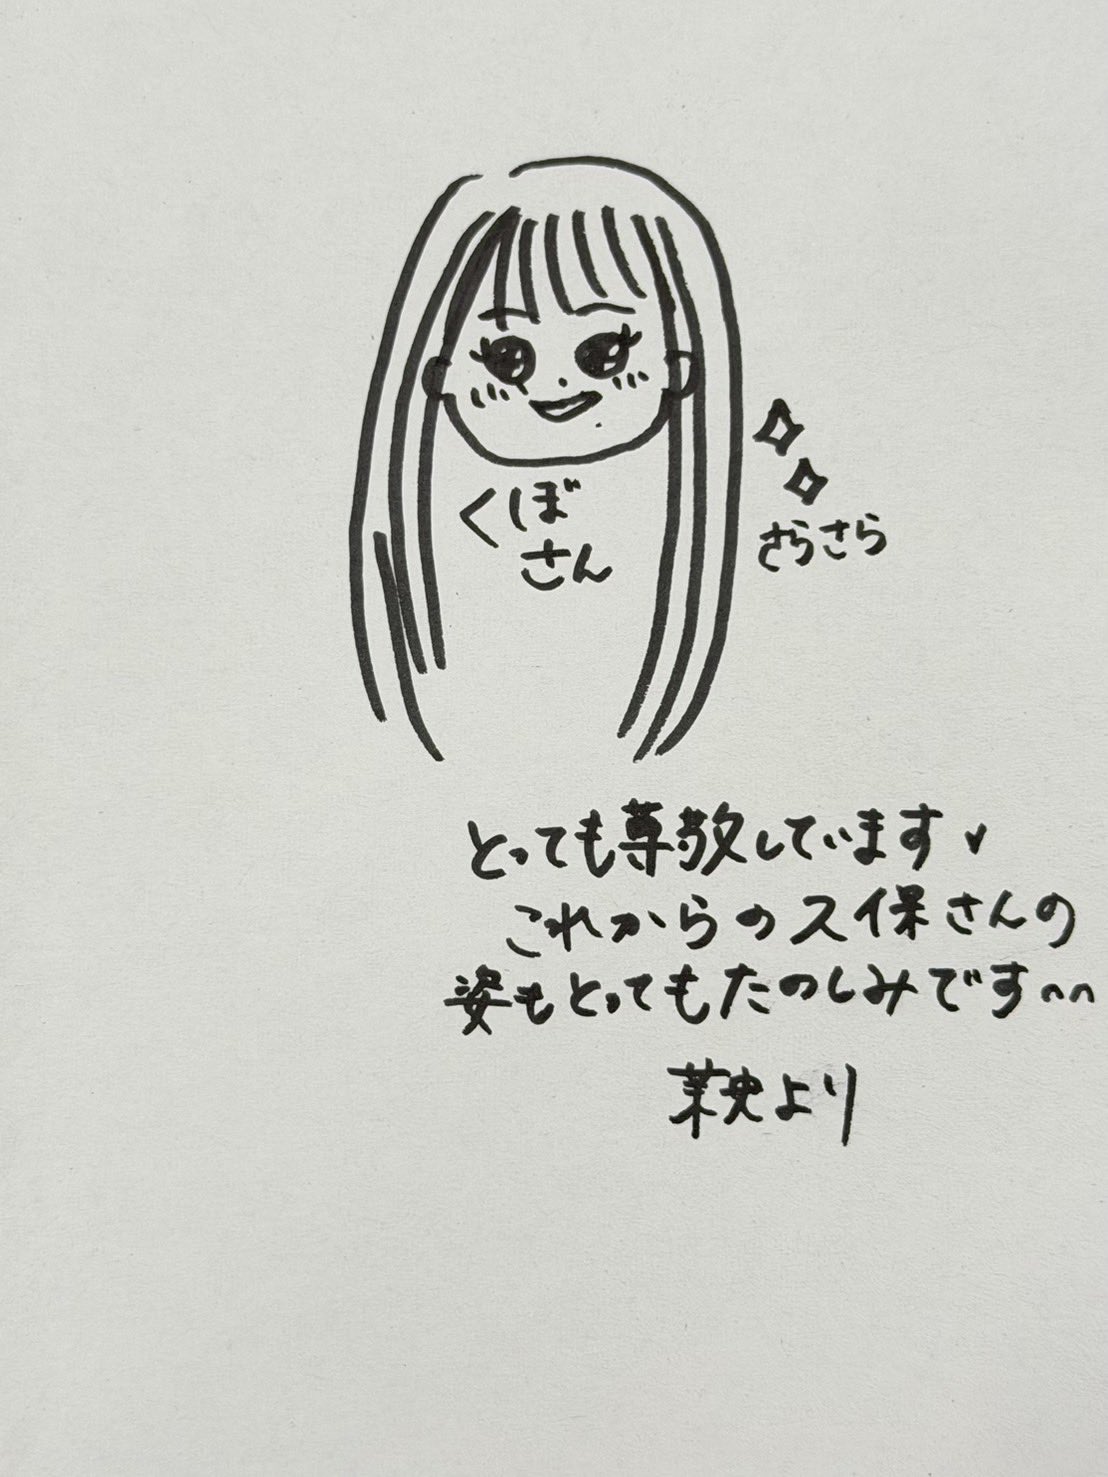 くぼ
さん
さらさら
とっても尊敬しています
これからの久保さんの
姿もとってもたのしみです^^
茉央より